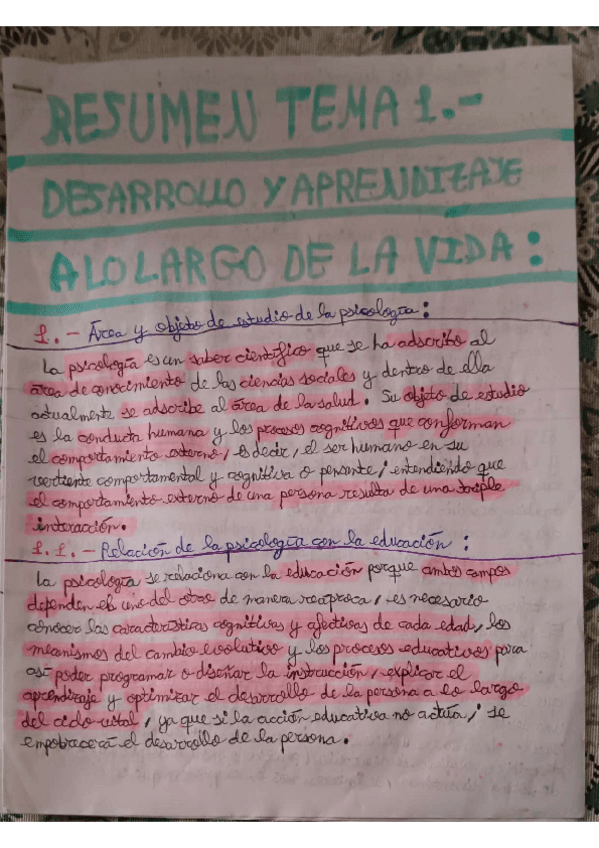 RESUMEN TEMA 1.-
DESARROLLO Y APRENDIZAJE
A LO LARGO DE LA VIDA:
1.- Área y objeto de estudio de la psicología:
La psicología es un saber científico que se ha adscrito al
área de conocimiento de las ciencias sociales y dentro de ella
actualmente se adscribe al área de la salud. Su objeto de estudio
es la conducta humana y los procesos cognitivos que conforman
el comportamiento externo, es decir, el ser humano en su
vertiente comportamental y cognitiva o pensante, entendiendo que
el comportamiento externo de una persona resulta de una triple
interacción.
1.1.- Relación de la psicología con la educación:
La psicología se relaciona con la educación porque ambos campos
dependen el uno del otro de manera recíproca, es necesario
conocer las características cognitivas y afectivas de cada edad, los
mecanismos del cambio evolutivo y los procesos educativos para
así poder programar o diseñar la instrucción, explicar el
aprendizaje y optimizar el desarrollo de la persona a lo largo
del ciclo vital, ya que si la acción educativa no actúa, se
empobrecerá el desarrollo de la persona.